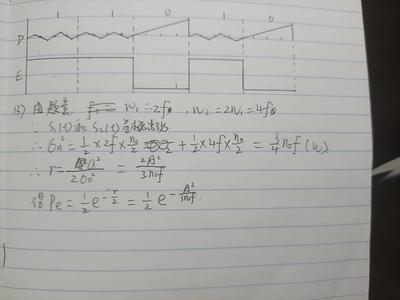 1 1 0 1 0
D
E
(3) 由题意 w₁=2f₀, w₂=2w₁=4f₀
∵ S₁(t)和S₂(t)
∴ σn²=½×2f×n₀/2 + ½×4f×n₀/2 = 3/4 n₀f (w)
∴ r=a²/2σn² = 2A²/3n₀f
Pe=½e^(-r/2) = ½e^(-A²/3n₀f).